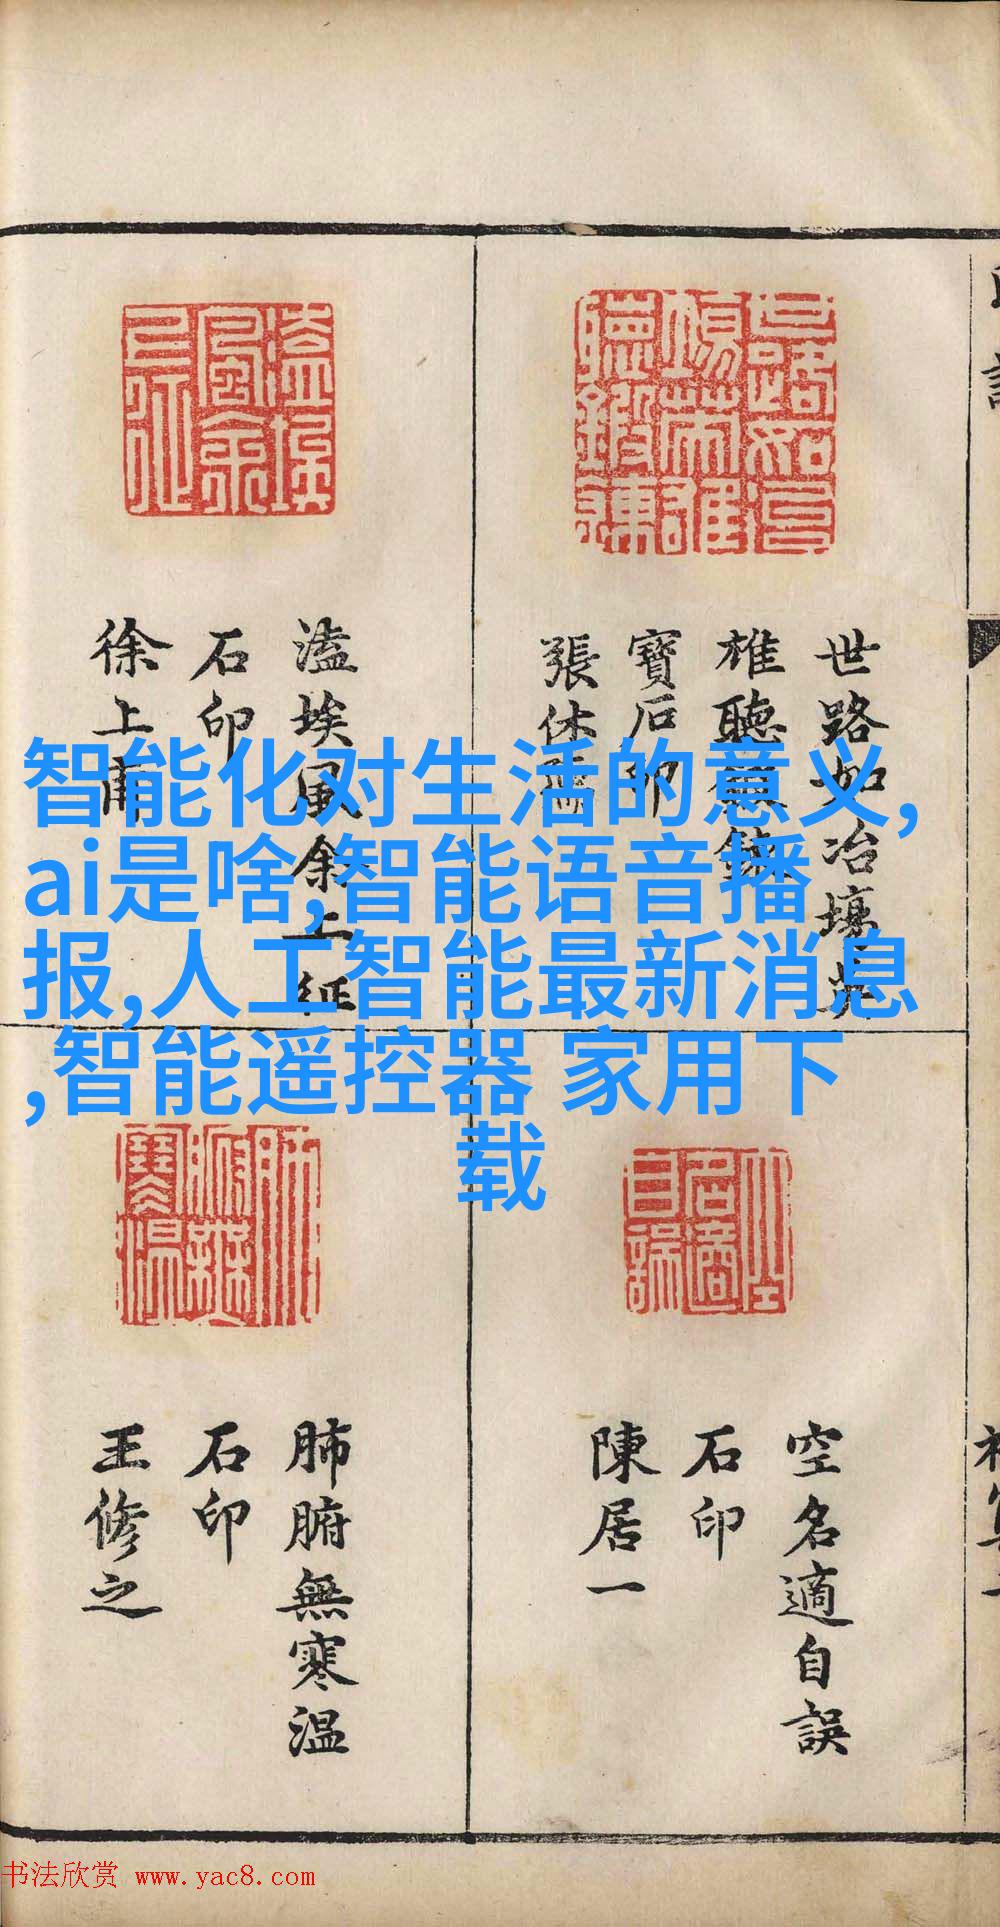 智能化对生活的意义,
ai是啥,智能语音播
报,人工智能最新消息
,智能遥控器 家用下
载
世路如冶壤英
雄聽鍛鍊
寶石印
張休
溘埃風余上征
石印
徐上甫
空名適自誤
石印
陳居一
肺腑無寒温
石印
王修之
书法欣赏 www.yac8.com